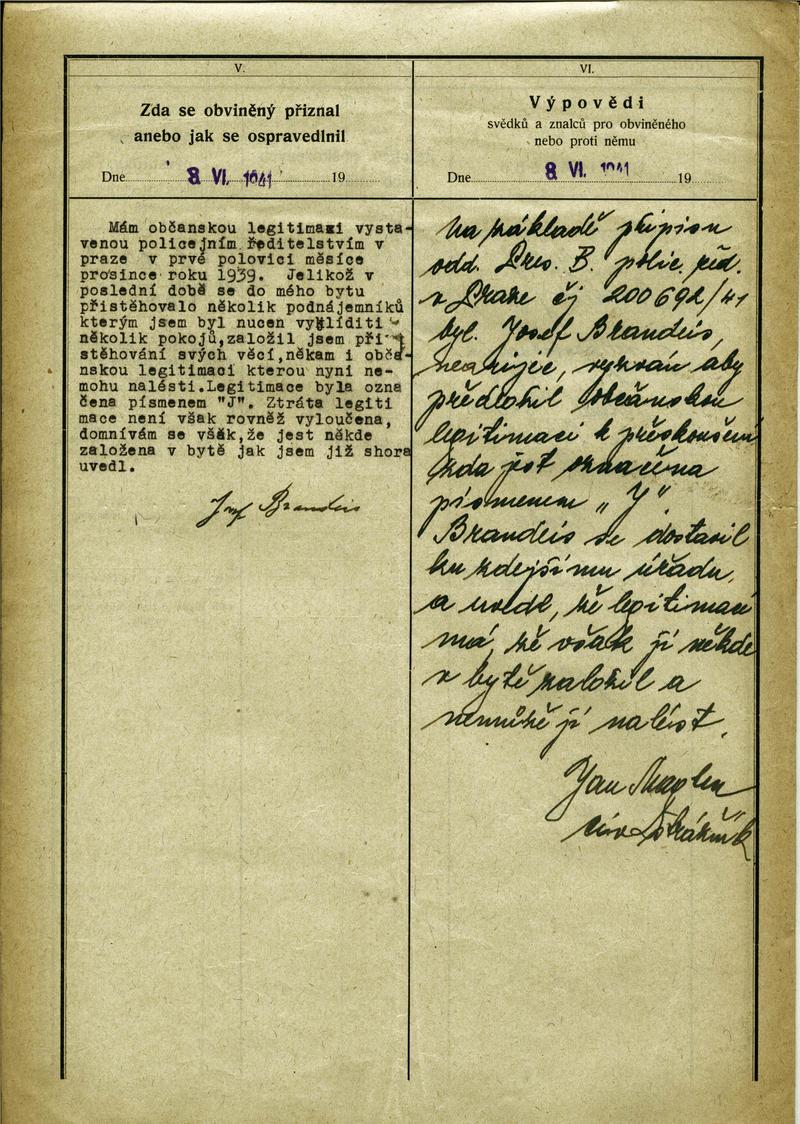 V.
Zda se obviněný přiznal
anebo jak se ospravedlnil
Dne 8. VI. 1941 19
Mám občanskou legitimaxi vysta-
venou policejním ředitelstvím v
praze v prvé polovici měsíce
prosince roku 1939. Jelikož v
poslední době se do mého bytu
přistěhovalo několik podnájemníků
kterým jsem byl nucen vyklíditi
několik pokojů,založil jsem při
stěhování svých věcí,někam i obča-
nskou legitimaci kterou nyni ne-
mohu nalésti.Legitimace byla ozna
čena písmenem "J". Ztráta legiti
mace není však rovněž vyloučena,
domnívám se však,že jest někde
založena v bytě jak jsem již shora
uvedl.
Josef Brandeis
VI.
Výpovědi
svědků a znalců pro obviněného
nebo proti němu
Dne 8. VI. 1941 19
Na základě přípisu
odd. Pres. B. polic. řed.
v Praze čj 200692/41
byl Josef Brandeis,
nearijec, vyzván aby
předložil občanskou
legitimaci k přezkoušení
zda jest označena
písmenem „J"
Brandeis se dostavil
ku zdejšímu úřadu,
a uvedl, že legitimaci
má, že však ji někde
v bytě založil a
nemůže ji nalést.
Jan
strážník